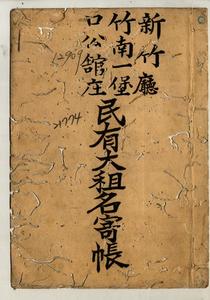 新竹廳
竹南一堡
口公館庄
民有大租名寄帳
12909
21774